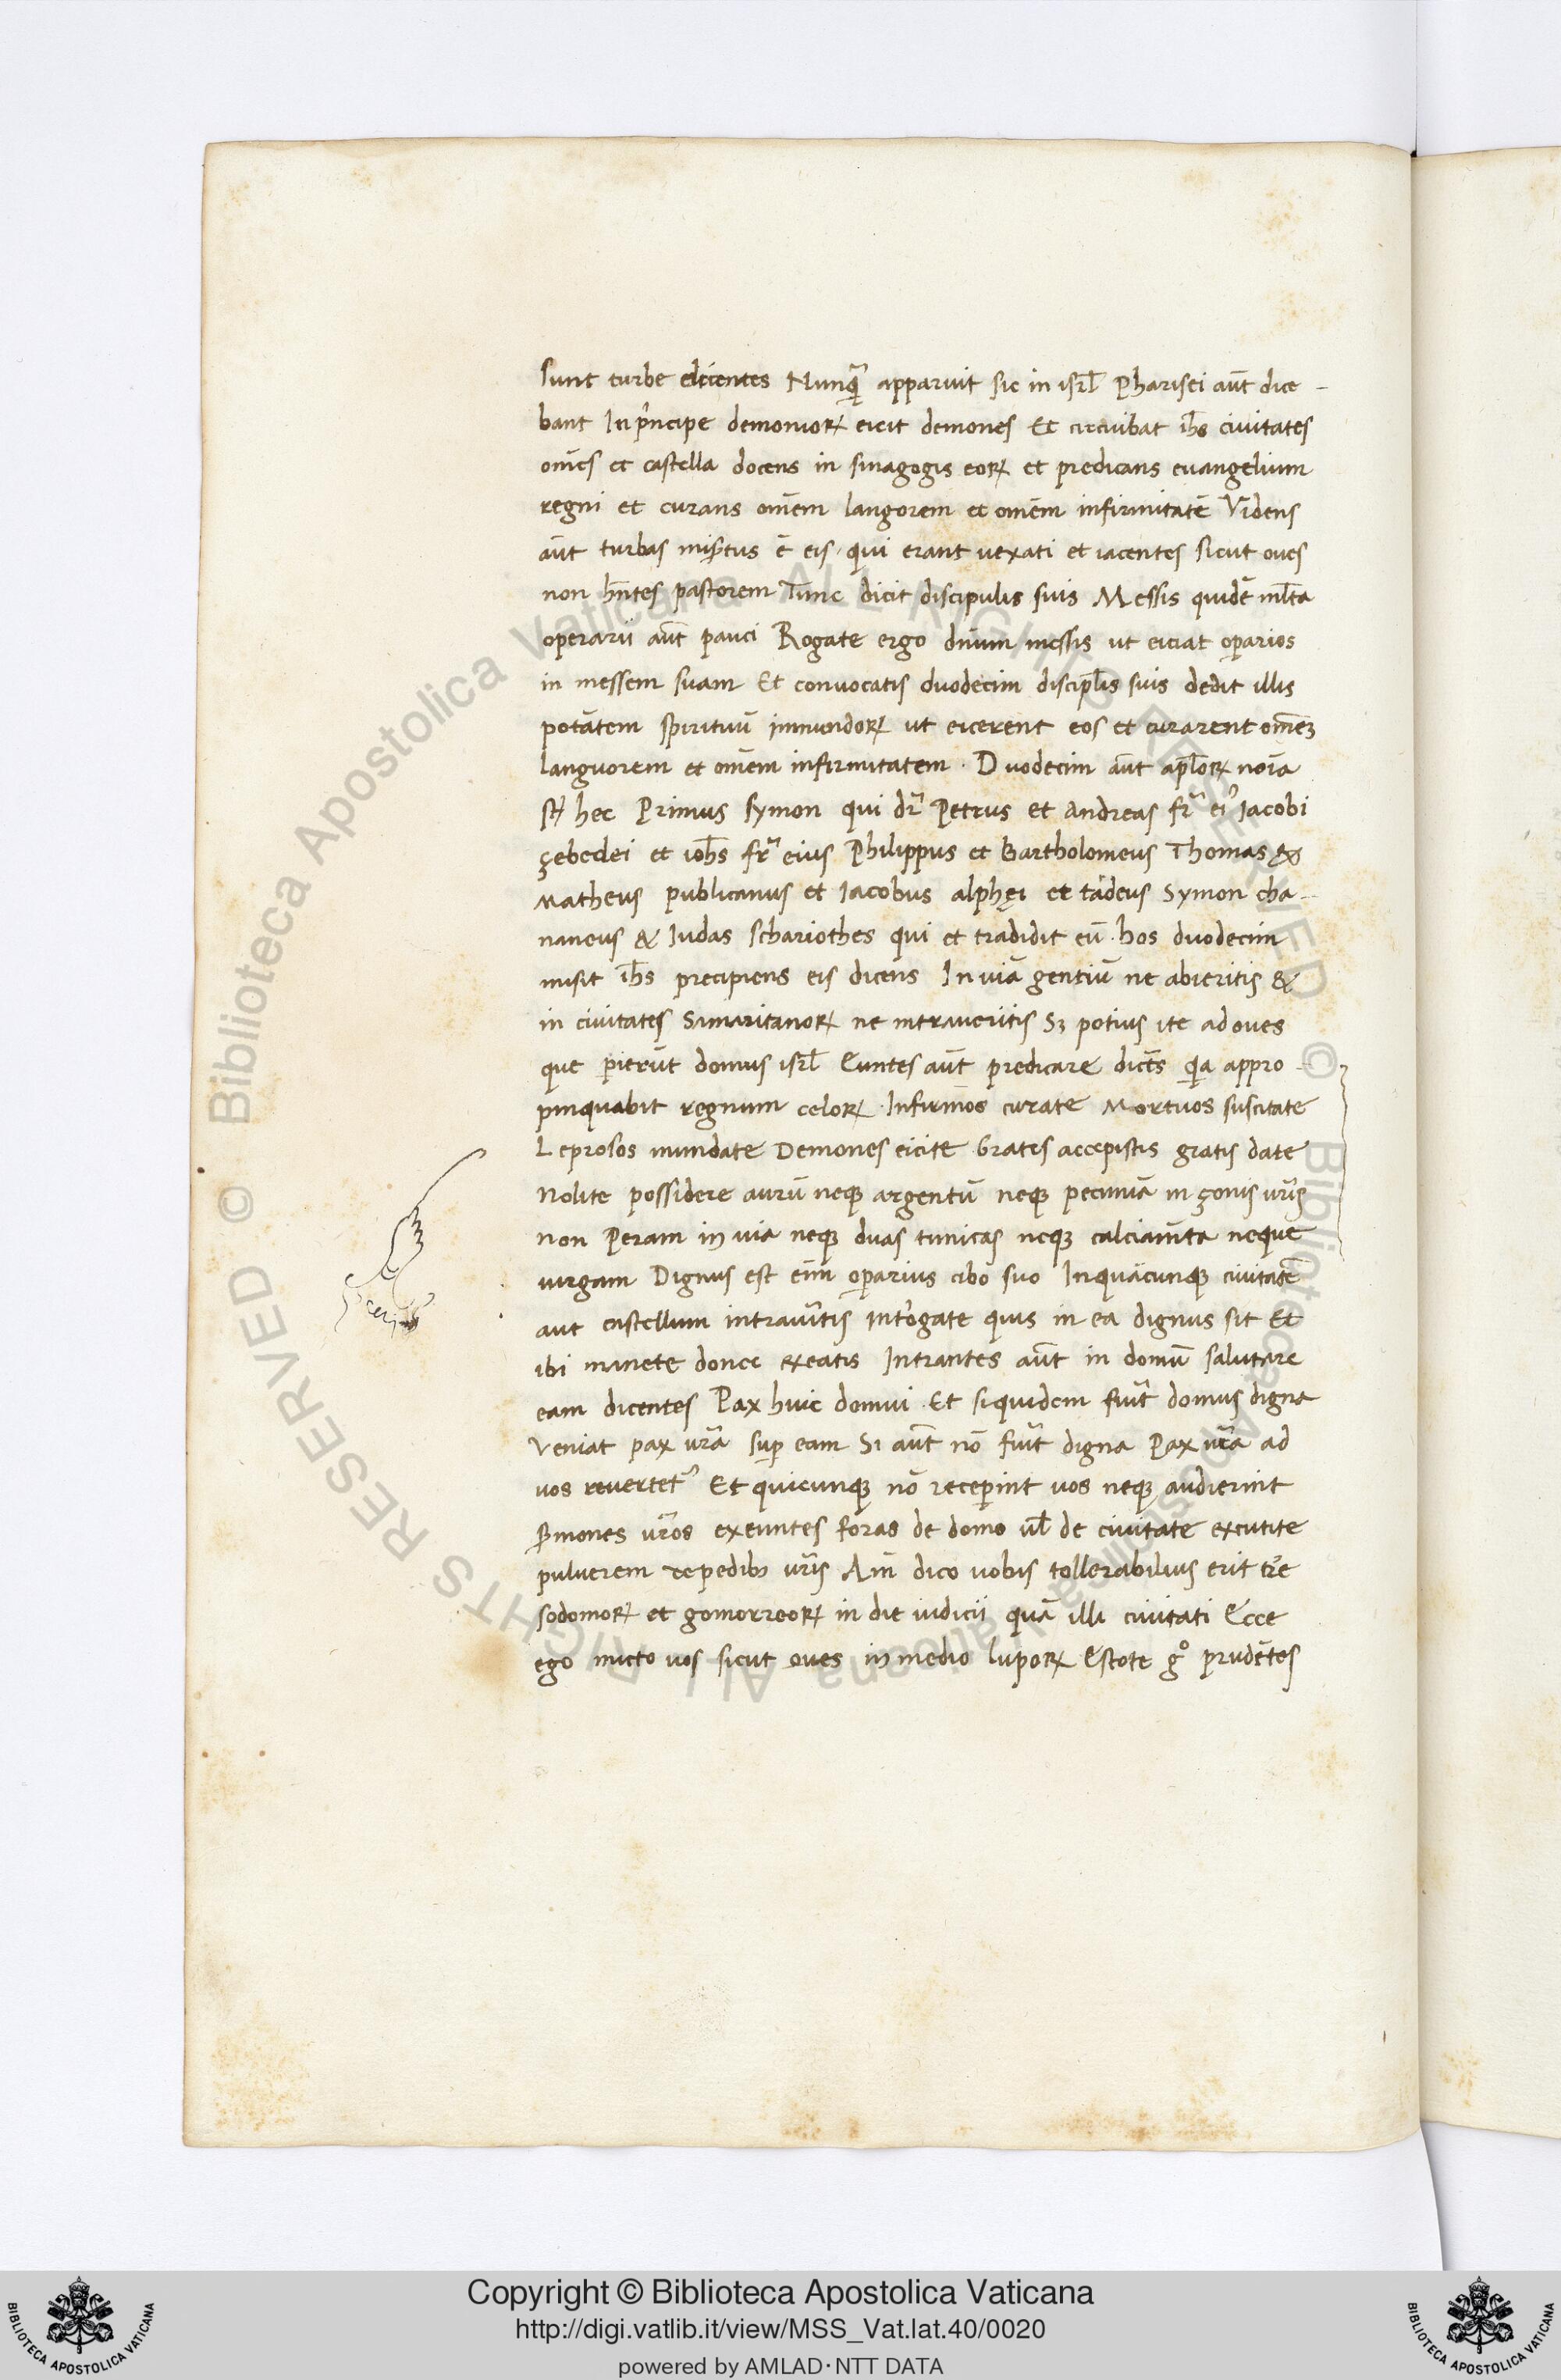 sunt turbe dicentes Nunq̄ apparuit sic in isrl̄ Pharisei aūt dice-
bant In prīncipe demonioꝝ eicit demones Et circuibat ih̄s ciuitates
om̄es et castella docens in sinagogis eoꝝ et predicans euangelium
regni et curans om̄em langorem et om̄em infirmitatē Videns
aūt turbas mis̄tus ē eis · qui erant uexati et iacentes sicut oues
non hn̄tes pastorem Tunc dicit discipulis suis Messis quidē ml̄ta
operarii aūt pauci Rogate ergo dn̄um messis ut eiciat oꝑarios
in messem suam Et conuocatis duodecim discipl̄is suis dedit illis
potātem spirituū immundoꝝ ut eicerent eos et curarent om̄eꝫ
languorem et om̄em infirmitatem · Duodecim aūt apl̄oꝝ noīa
st̄ hec Primus symon qui dr̄ Petrus et Andreas fr̄ ei᾽ Iacobi
çebedei et ioh̄s fr̄ eius Philippus et Bartholomeus Thomas &
Matheus publicanus et Iacobus alphęi et tādeus Symon cha-
naneus & Iudas schariothes qui et tradidit eū · hos duodecim
misit ih̄s precipiens eis dicens In uiā gentiū ne abieritis &
in ciuitates Samaritanoꝝ ne intraueritis Sꝫ potius ite ad oues
que ꝑierūt domus isrl̄ Euntes aūt predicare dicēts qia appro-
pinquabit regnum celoꝝ · Infirmōs curate Mortuos suscitate
Leprosos mundate Demones eicite Gratis accepistis gratis date
Nolite possidere aurū neqꝫ argentū neqꝫ pecuniā in çonis ur̄is
non Peram in uia neqꝫ duas tunicas neqꝫ calciam̄ta neque
uirgam Dignus est eīm oꝑarius cibo suo Inquācunqꝫ ciuitatē
aut castellum intrau̓itis int̓ogate quis in ea dignus sit Et
ibi manete donec exeatis Intrantes aūt in domū salutare
eam dicentes Pax huic domui · Et siquidem fu̓it domus digna
Veniat pax ur̄a suꝑ eam Si aūt nō fu̓it digna Pax ur̄a ad
uos reuertet᾽ Et quicunqꝫ nō receꝑint uos neqꝫ audierint
s̓mones ur̄os exeuntes foras de domo ul̄ de ciuitate excutite
puluerem de pedibꝫ ur̄is Am̄ dico uobis tollerabilius erit tr̄e
sodomoꝝ et gomorreoꝝ in die iudicii quā illi ciuitati Ecce
ego micto uos sicut oues in medio lupoꝝ Estote gͦ prudētes
© Biblioteca Apostolica Vaticana ALL RIGHTS RESERVED © Biblioteca Apostolica Vaticana ALL RIGHTS RESERVED
Copyright © Biblioteca Apostolica Vaticana
http://digi.vatlib.it/view/MSS_Vat.lat.40/0020
powered by AMLAD·NTT DATA
BIBLIOTECA APOSTOLICA VATICANA
BIBLIOTECA APOSTOLICA VATICANA